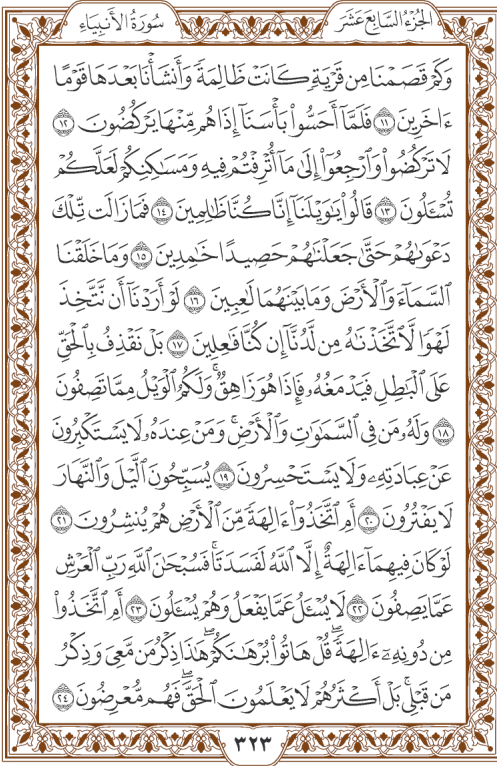 الجُزْءُ السَّابِعَ عَشَرَ
سُورَةُ الأَنبِيَاءِ
وَكَمْ قَصَمْنَا مِن قَرْيَةٍ كَانَتْ ظَالِمَةً وَأَنشَأْنَا بَعْدَهَا قَوْمًا
ءَاخَرِينَ ١١ فَلَمَّآ أَحَسُّوا۟ بَأْسَنَآ إِذَا هُم مِّنْهَا يَرْكُضُونَ ١٢
لَا تَرْكُضُوا۟ وَٱرْجِعُوٓا۟ إِلَىٰ مَآ أُتْرِفْتُمْ فِيهِ وَمَسَٰكِنِكُمْ لَعَلَّكُمْ
تُسْـَٔلُونَ ١٣ قَالُوا۟ يَٰوَيْلَنَآ إِنَّا كُنَّا ظَٰلِمِينَ ١٤ فَمَا زَالَت تِّلْكَ
دَعْوَىٰهُمْ حَتَّىٰ جَعَلْنَٰهُمْ حَصِيدًا خَٰمِدِينَ ١٥ وَمَا خَلَقْنَا
ٱلسَّمَآءَ وَٱلْأَرْضَ وَمَا بَيْنَهُمَا لَٰعِبِينَ ١٦ لَوْ أَرَدْنَآ أَن نَّتَّخِذَ
لَهْوًا لَّٱتَّخَذْنَٰهُ مِن لَّدُنَّآ إِن كُنَّا فَٰعِلِينَ ١٧ بَلْ نَقْذِفُ بِٱلْحَقِّ
عَلَى ٱلْبَٰطِلِ فَيَدْمَغُهُۥ فَإِذَا هُوَ زَاهِقٌ ۚ وَلَكُمُ ٱلْوَيْلُ مِمَّا تَصِفُونَ
١٨ وَلَهُۥ مَن فِى ٱلسَّمَٰوَٰتِ وَٱلْأَرْضِ ۚ وَمَنْ عِندَهُۥ لَا يَسْتَكْبِرُونَ
عَنْ عِبَادَتِهِۦ وَلَا يَسْتَحْسِرُونَ ١٩ يُسَبِّحُونَ ٱلَّيْلَ وَٱلنَّهَارَ
لَا يَفْتُرُونَ ٢٠ أَمِ ٱتَّخَذُوٓا۟ ءَالِهَةً مِّنَ ٱلْأَرْضِ هُمْ يُنشِرُونَ ٢١
لَوْ كَانَ فِيهِمَآ ءَالِهَةٌ إِلَّا ٱللَّهُ لَفَسَدَتَا ۚ فَسُبْحَٰنَ ٱللَّهِ رَبِّ ٱلْعَرْشِ
عَمَّا يَصِفُونَ ٢٢ لَا يُسْـَٔلُ عَمَّا يَفْعَلُ وَهُمْ يُسْـَٔلُونَ ٢٣ أَمِ ٱتَّخَذُوا۟
مِن دُونِهِۦٓ ءَالِهَةً ۖ قُلْ هَاتُوا۟ بُرْهَٰنَكُمْ ۖ هَٰذَا ذِكْرُ مَن مَّعِىَ وَذِكْرُ
مَن قَبْلِى ۗ بَلْ أَكْثَرُهُمْ لَا يَعْلَمُونَ ٱلْحَقَّ ۖ فَهُم مُّعْرِضُونَ ٢٤
٣٢٣